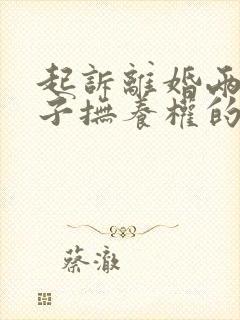 起訴離婚兩
子撫養權的
蔡澈